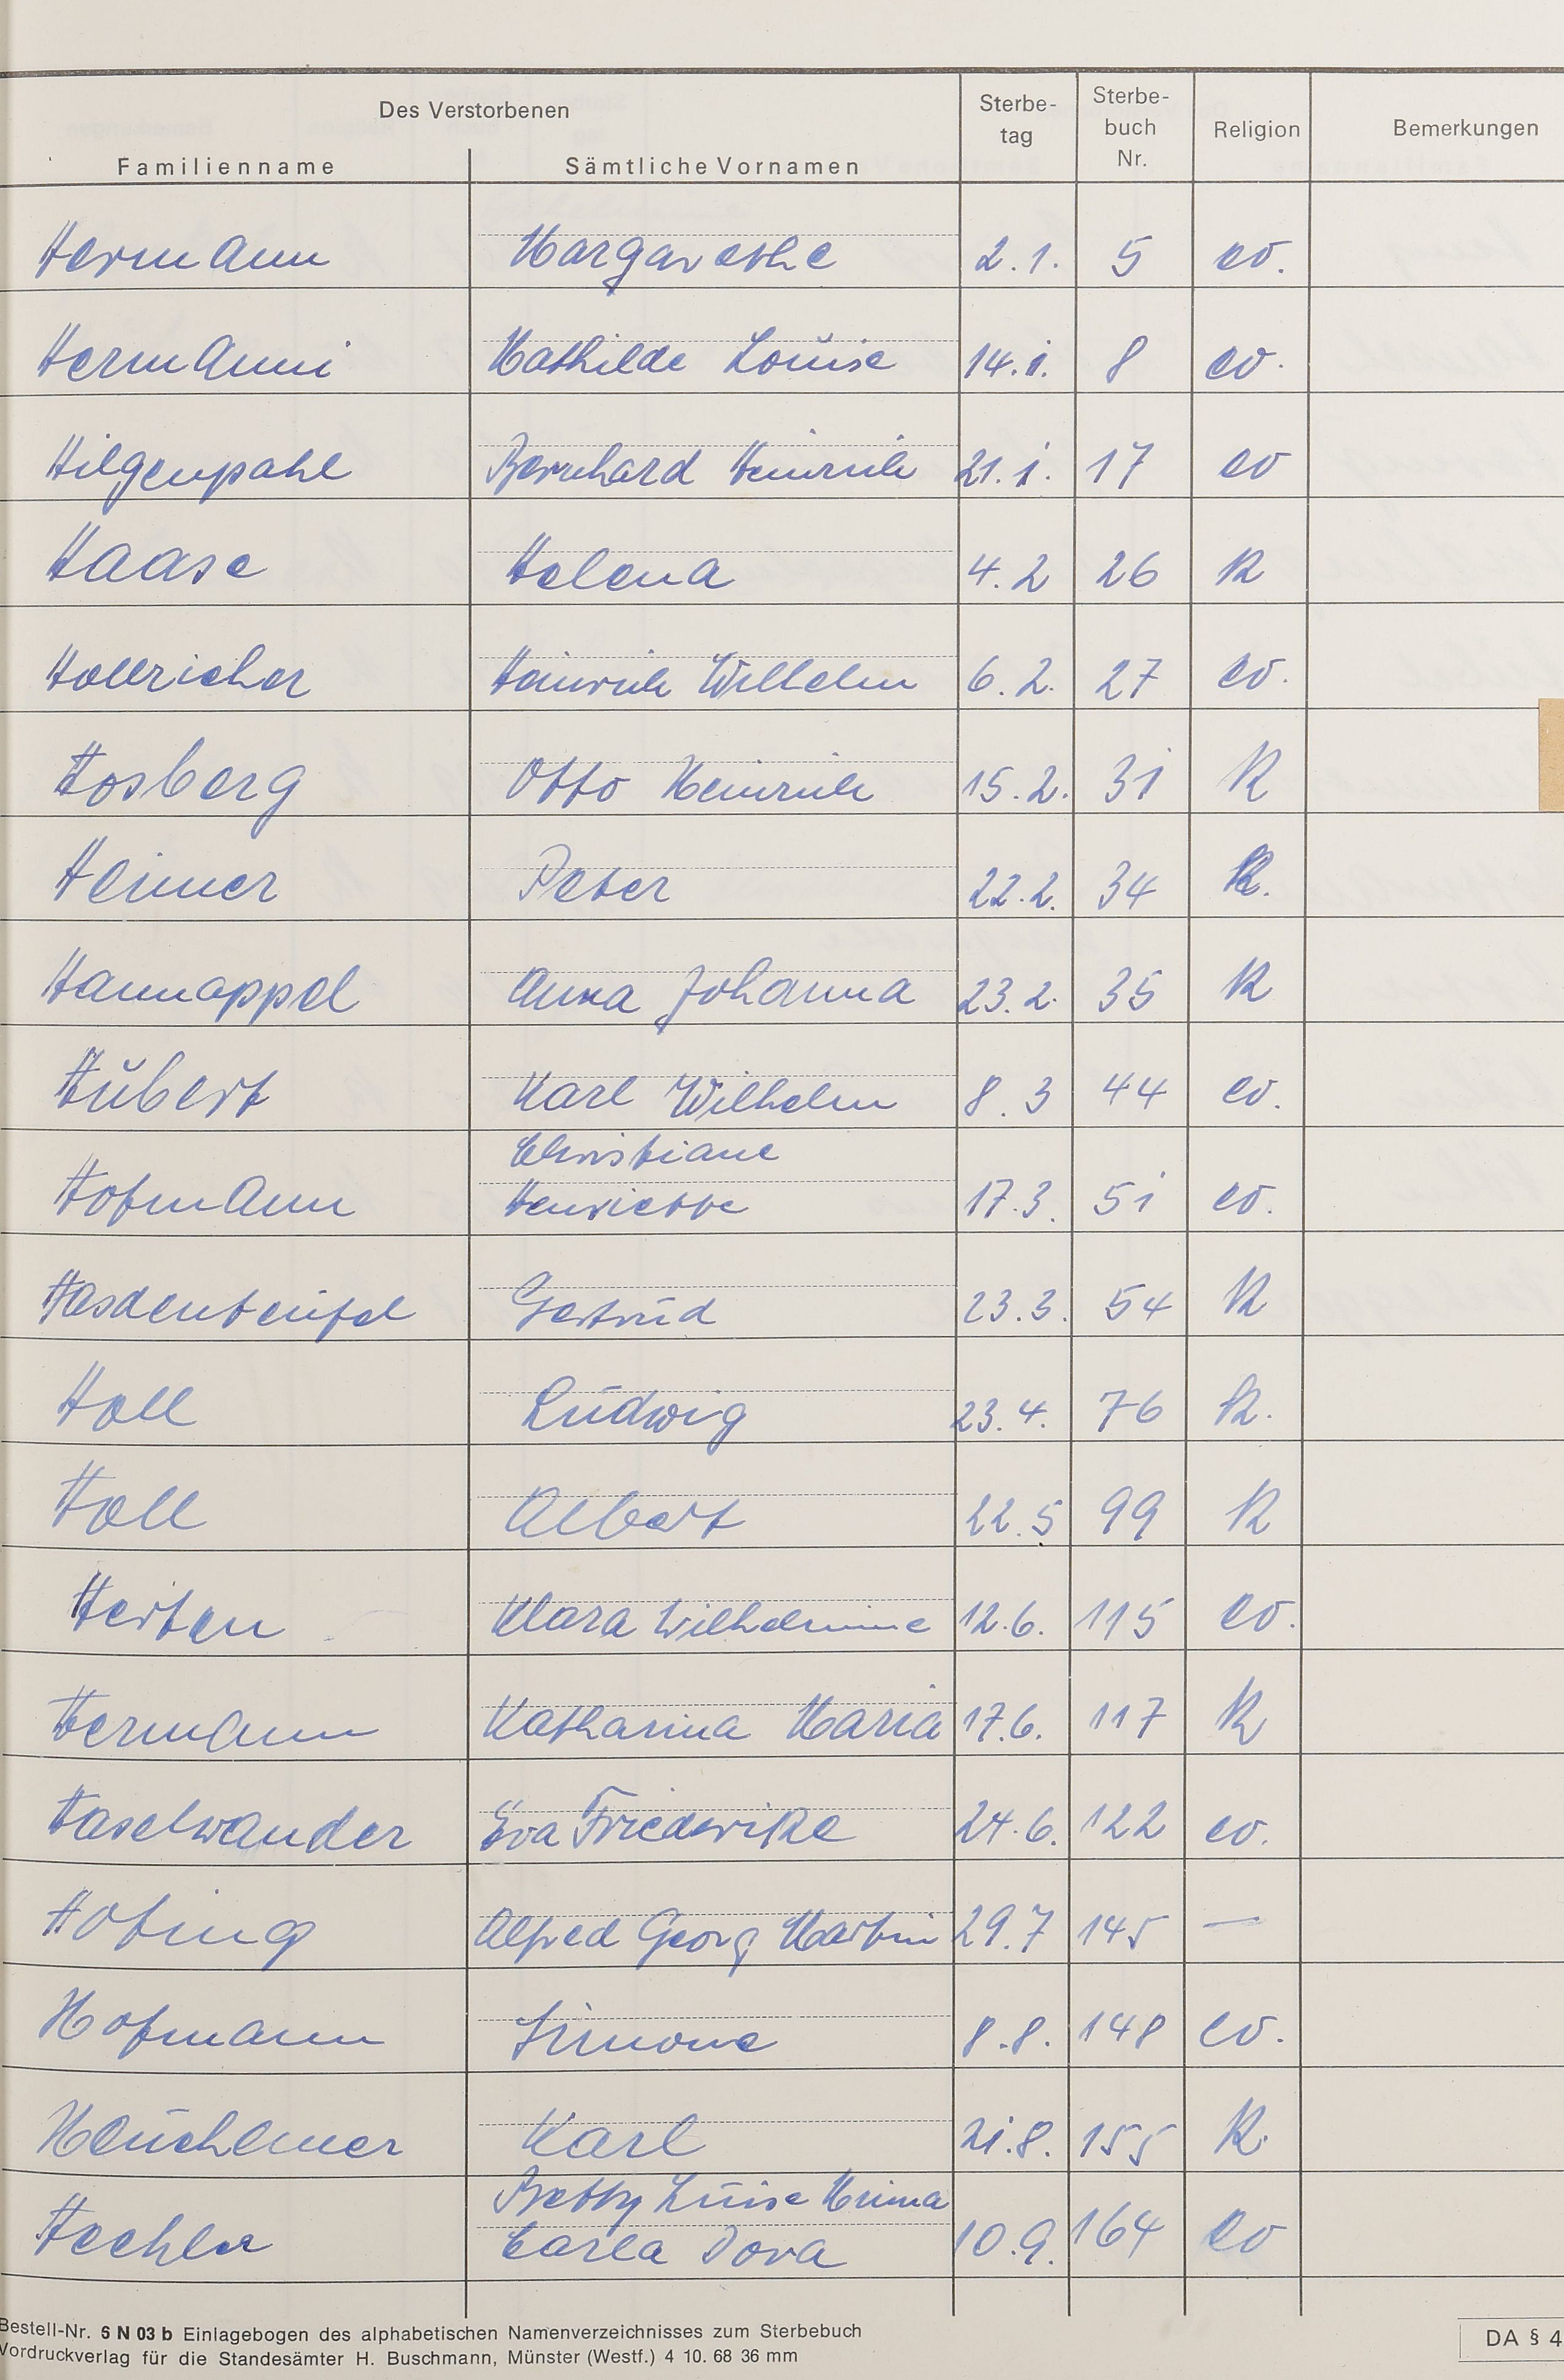 Des Verstorbenen
Familienname Sämtliche Vornamen Sterbe-tag Sterbe-buch Nr. Religion Bemerkungen
Hermann Margarethe 2.1. 5 ev.
Hermanni Mathilde Louise 14.1. 8 ev.
Hilgenpahl Bernhard Heinrich 21.1. 17 ev
Haase Helena 4.2 26 K
Hollricher Heinrich Wilhelm 6.2. 27 ev.
Hosberg Otto Heinrich 15.2. 31 K
Heimer Peter 22.2. 34 K.
Hannappel Anna Johanna 23.2. 35 K
Hubert Karl Wilhelm 8.3 44 ev.
Christiane
Hofmann Henriette 17.3. 51 ev.
Hasdenteufel Gertrud 23.3. 54 K
Holl Ludwig 23.4. 76 K.
Holl Albert 22.5 99 K
Herten Klara Wilhelmine 12.6. 115 ev.
Hermann Katharina Maria 17.6. 117 K
Haselwander Eva Friederike 24.6. 122 ev.
Hofing Alfred Georg Martin 29.7 145 —
Hofmann Simone 8.8. 148 ev.
Heuchemer Karl 21.8. 155 K.
Betty Luise
Hechler Carla Dora 10.9. 164 ev
Bestell-Nr. 6 N 03 b Einlagebogen des alphabetischen Namenverzeichnisses zum Sterbebuch
Vordruckverlag für die Standesämter H. Buschmann, Münster (Westf.) 4 10. 68 36 mm
DA § 4